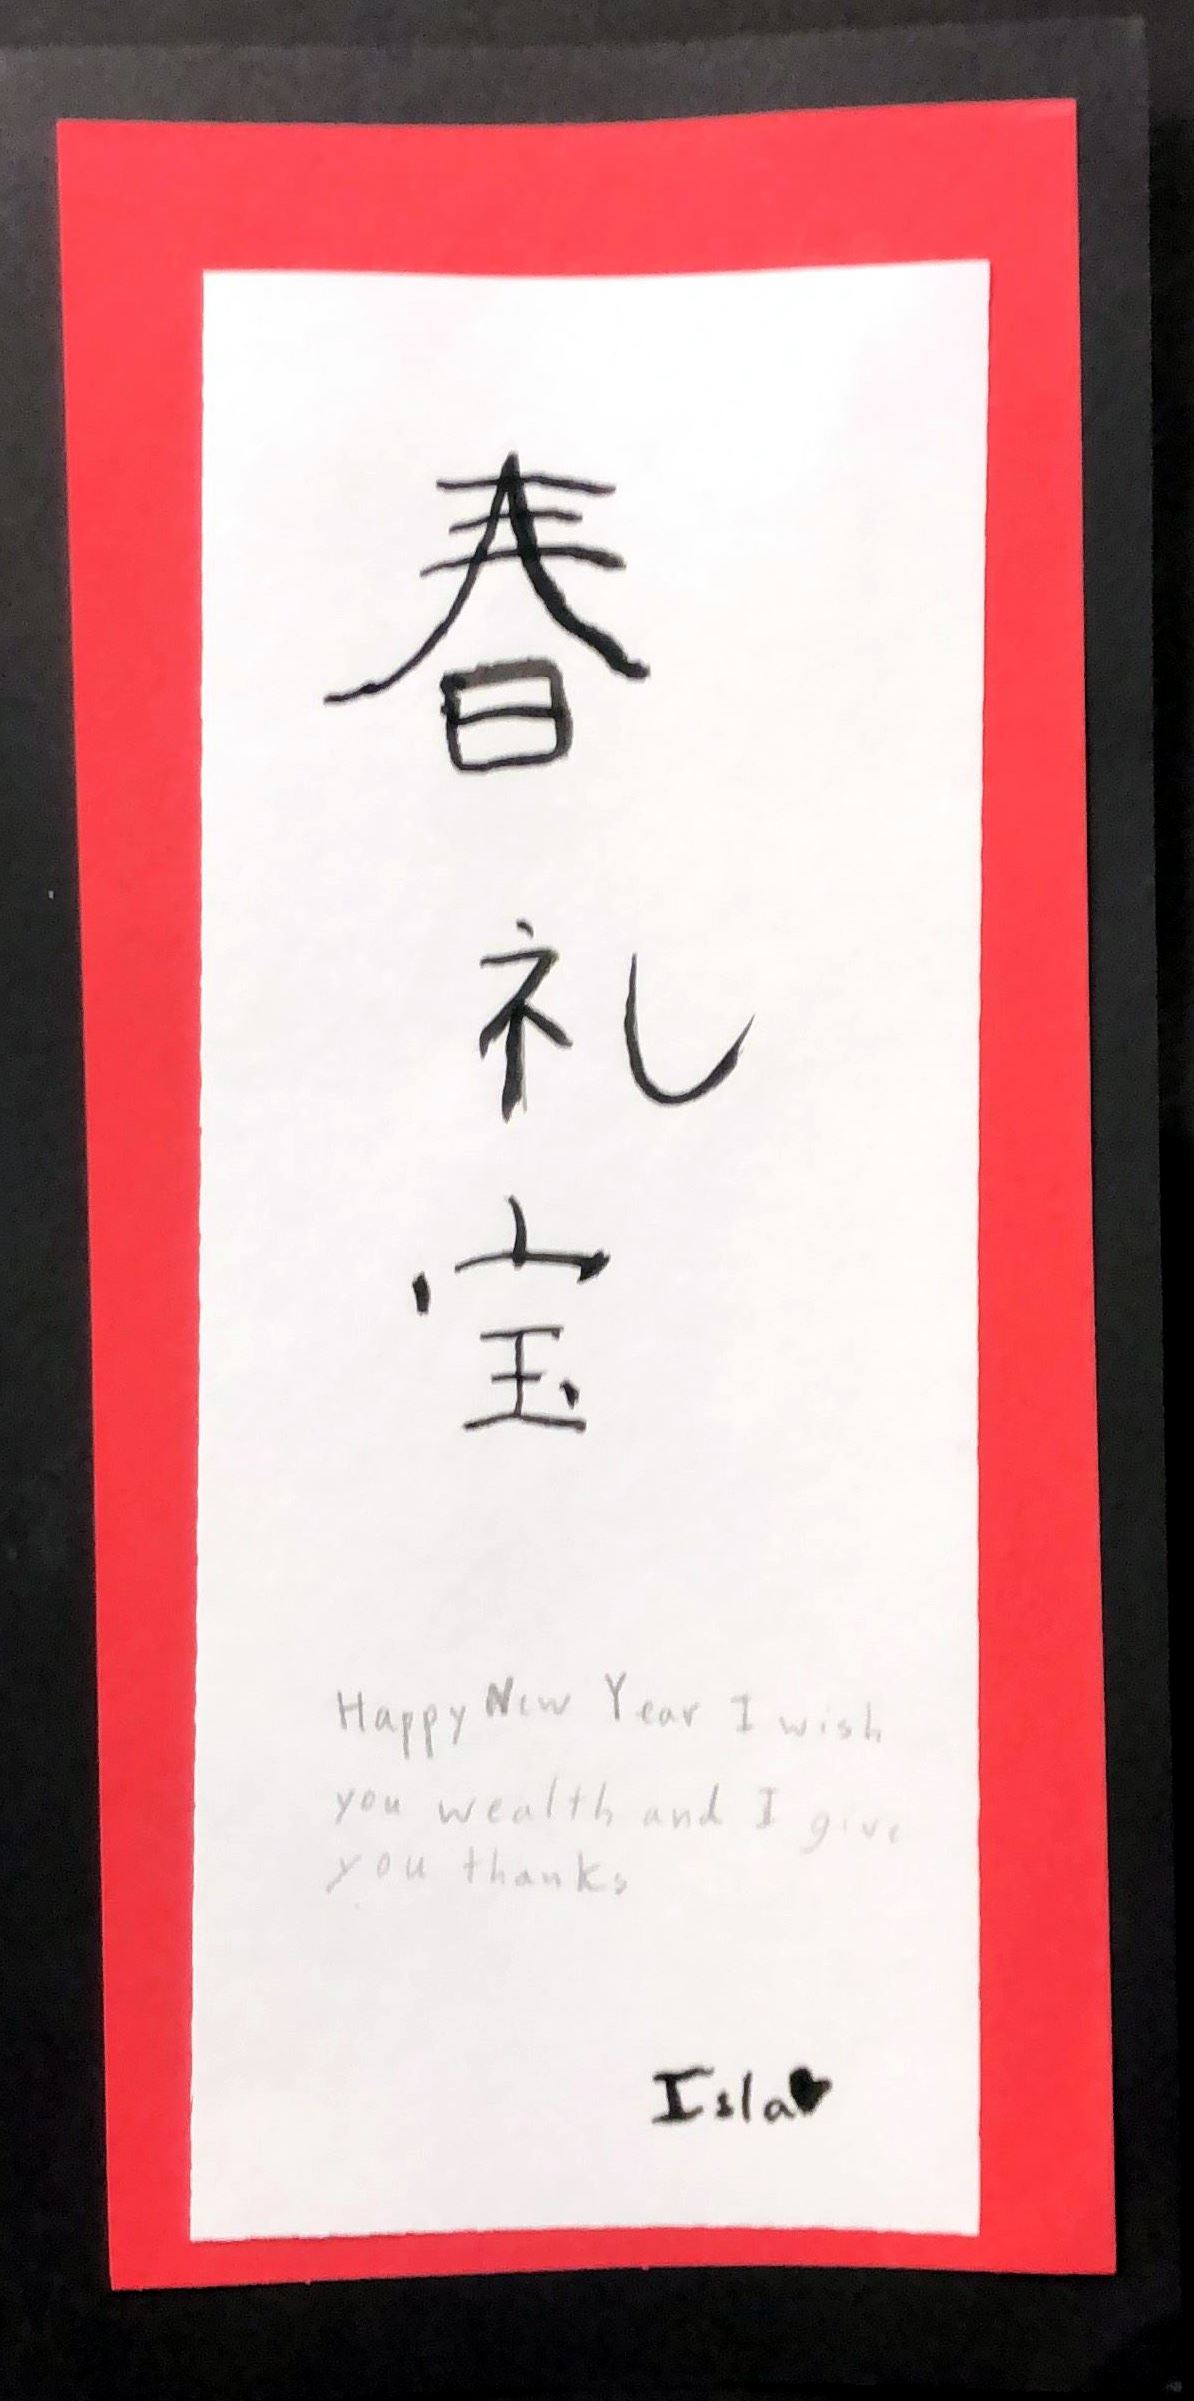 春
礼
宝
Happy New Year I wish
you wealth and I give
you thanks
Isla♥